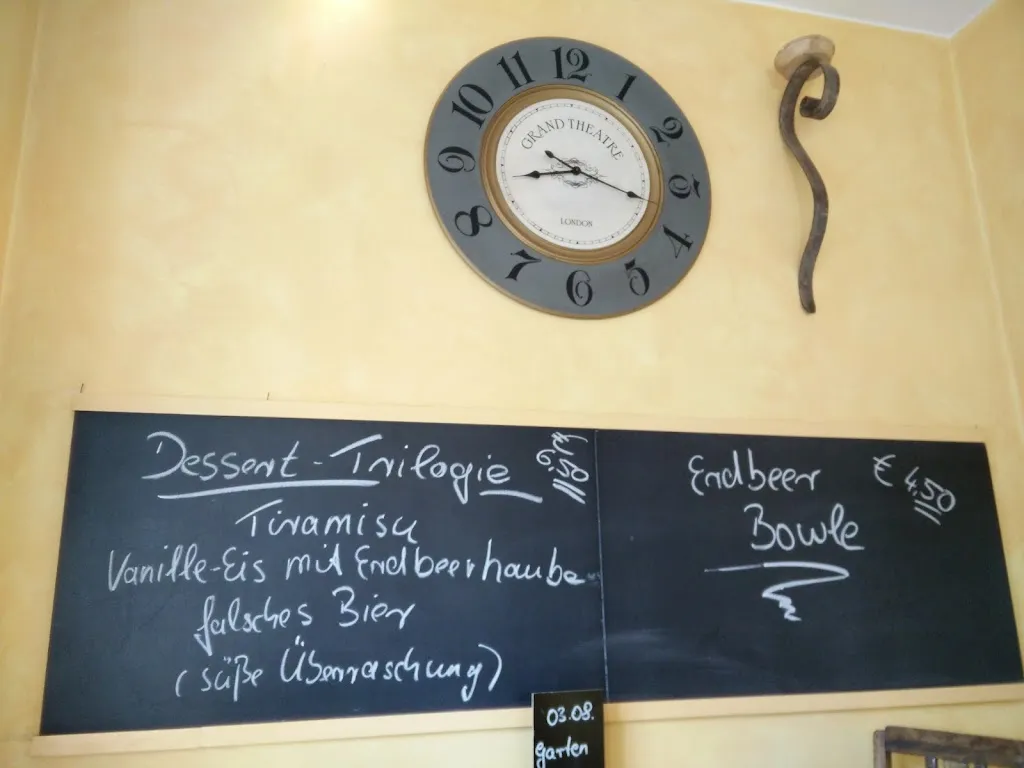 11 12 1
10 2
9 3
8 4
7 6 5
GRAND THEATRE
LONDON
Dessert-Trilogie
Tiramisu
Vanille-Eis mit Erdbeerhaube
falsches Bier
(süße Überraschung)
Erdbeer € 4,50
Bowle
03.08.
garten